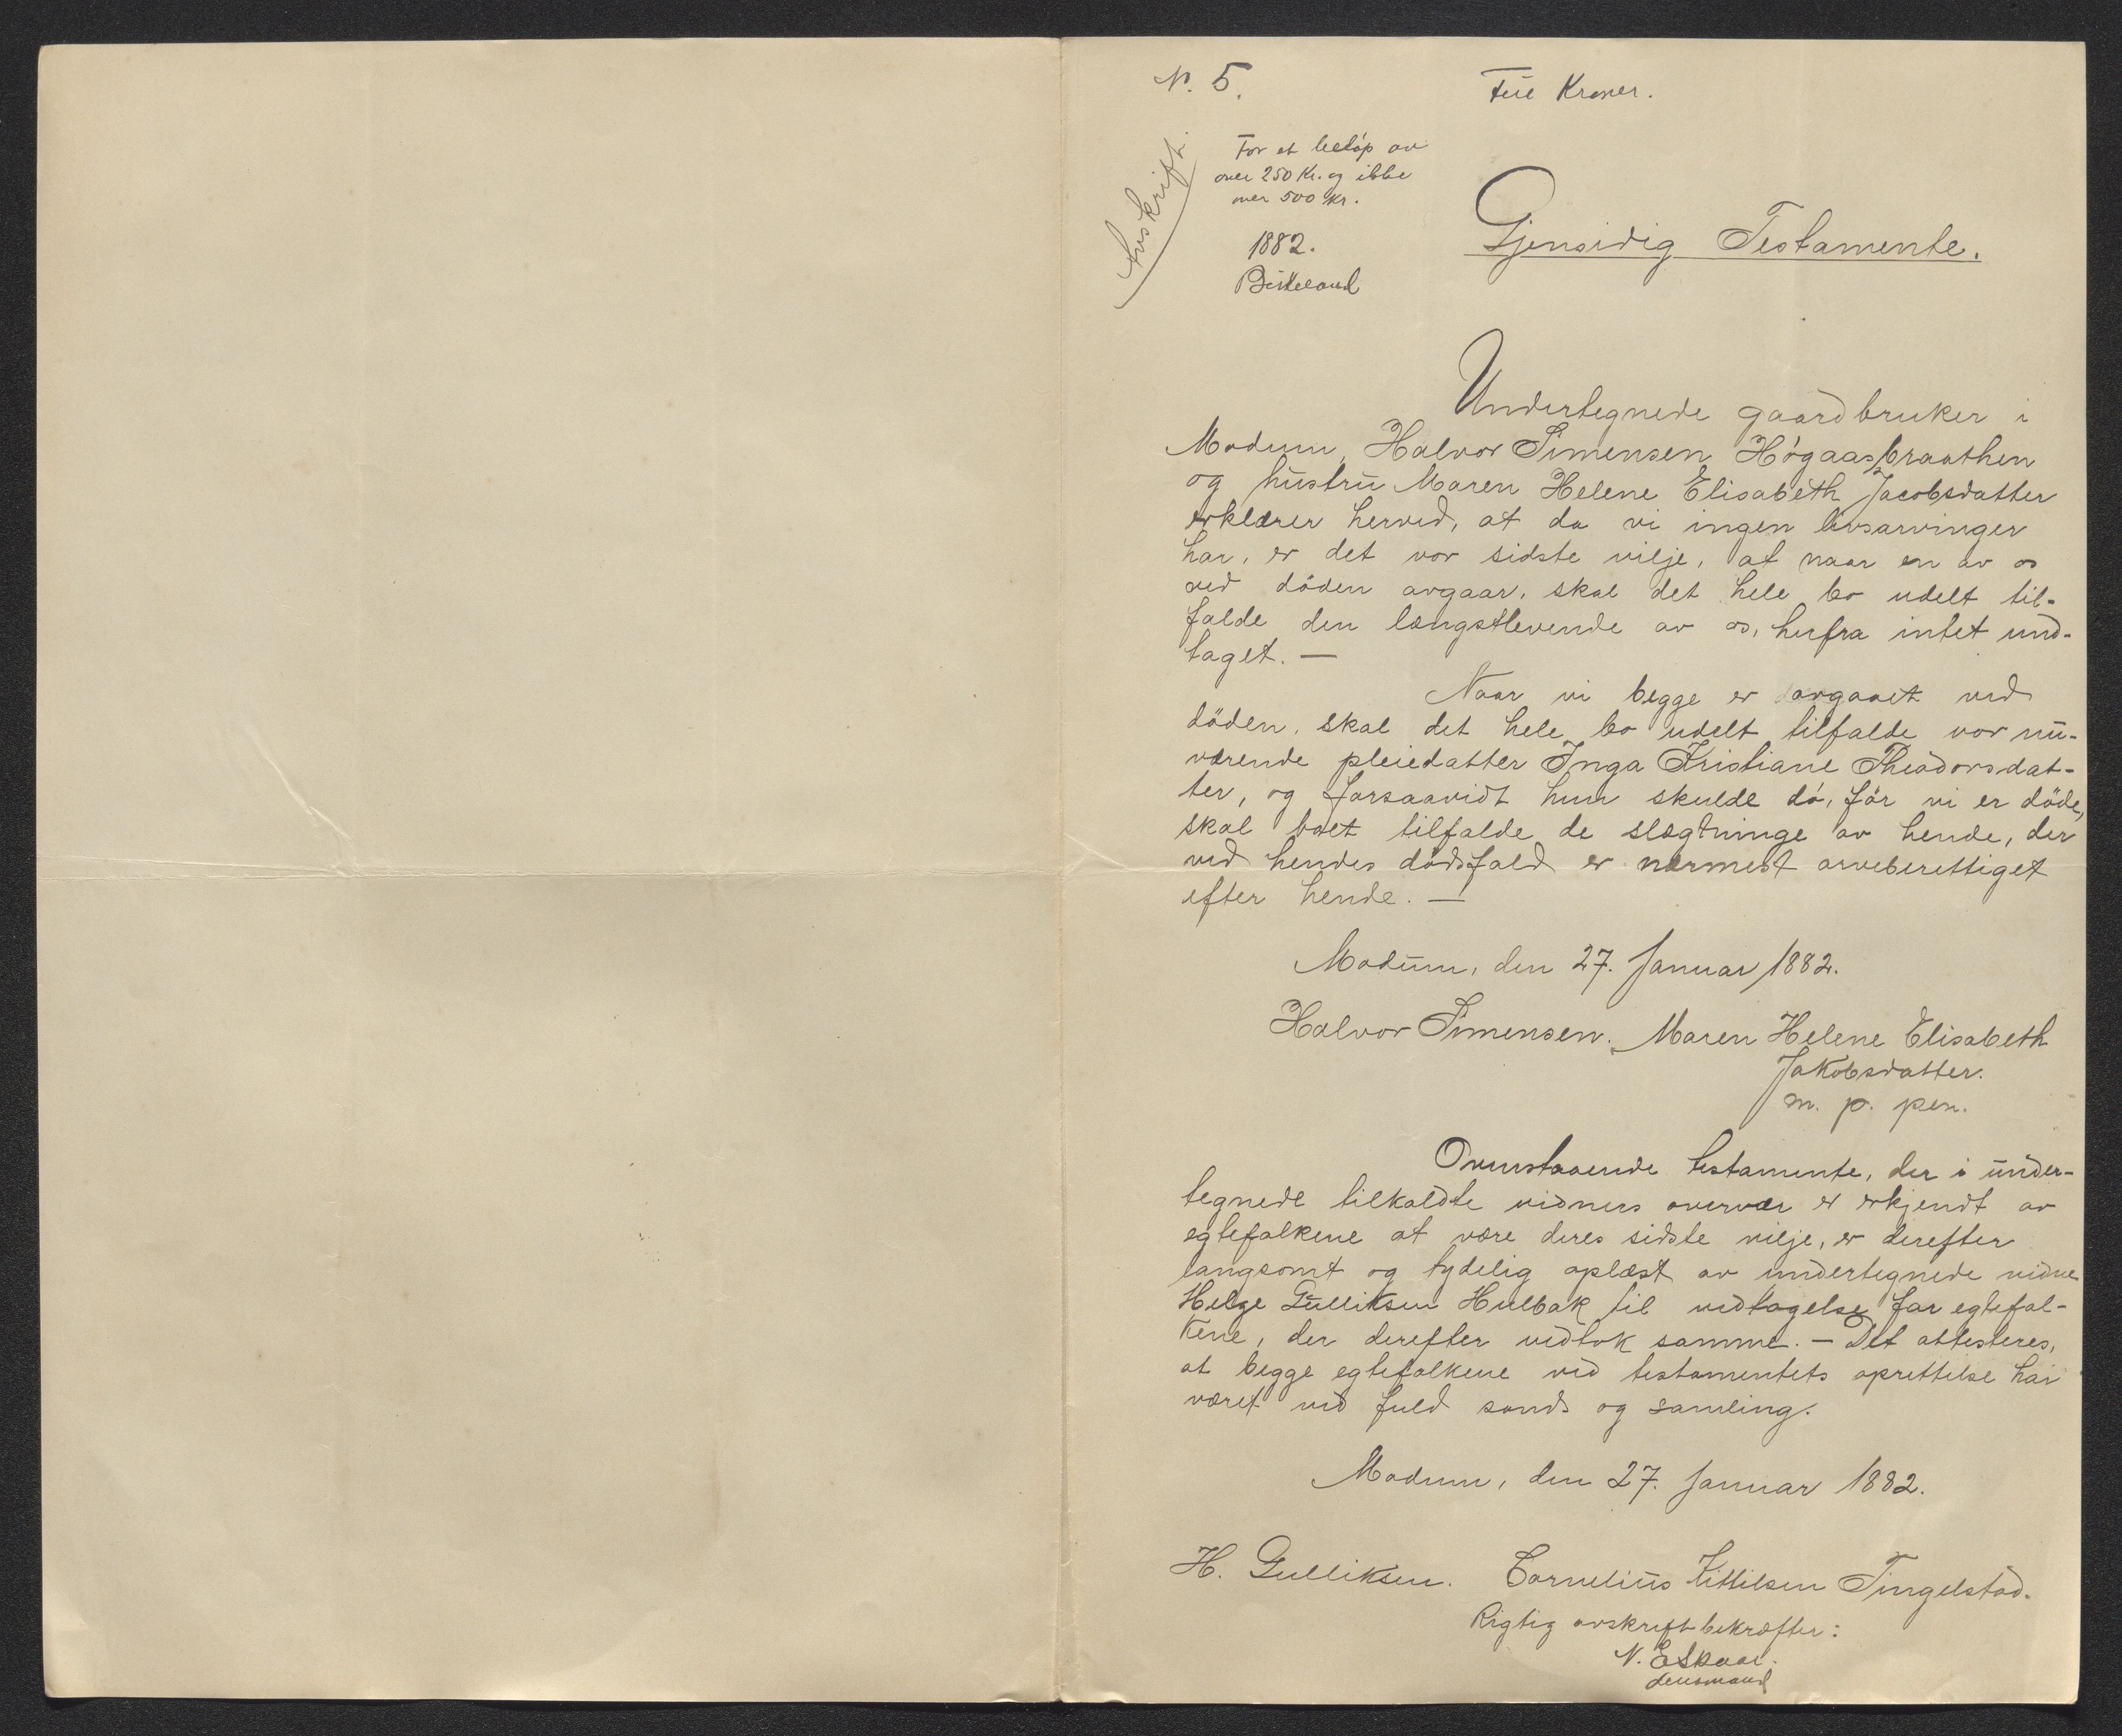 No. 5.
Fire Kroner.
Avskrift.
For et beløp av
over 250 Kr. og ikke
over 500 Kr.
1882.
Birkeland
Gjensidig Testamente.
Undertegnede gaardbruker i
Modum, Halvor Simensen Høgaasbraathen
og hustru Maren Helene Elisabeth Jacobsdatter
erklærer herved, at da vi ingen livsarvinger
har, er det vor sidste vilje, at naar en av os
ved döden avgaar, skal det hele bo udelt til-
falde den længstlevende av os, herfra intet und-
taget. —
Naar vi begge er avgaaet ved
döden, skal det hele bo udelt tilfalde vor nu-
værende pleiedatter Inga Kristiane Theodorsdat-
ter, og forsaavidt hun skulde dö, för vi er döde,
skal boet tilfalde de slægtninge av hende, der
ved hendes dödsfald er nærmest arveberettiget
efter hende. —
Modum, den 27. Januar 1882.
Halvor Simensen. Maren Helene Elisabeth
Jakobsdatter.
m. p. pen.
Ovenstaaende testamente, der i under-
tegnede tilkaldte vidners overvær er erkjendt av
egtefolkene at være deres sidste vilje, er derefter
langsomt og tydelig oplæst av undertegnede vidne
Helge Gulliksen Hulbak til vedtagelse for egtefol-
kene, der derefter vedtok samme. — Det attesteres,
at begge egtefolkene ved testamentets oprettelse har
været ved fuld sands og samling.
Modum, den 27. Januar 1882.
H. Gulliksen. Cornelius Kittilsen Tingelstad.
Rigtig avskrift bekræfter:
N.
lensmand